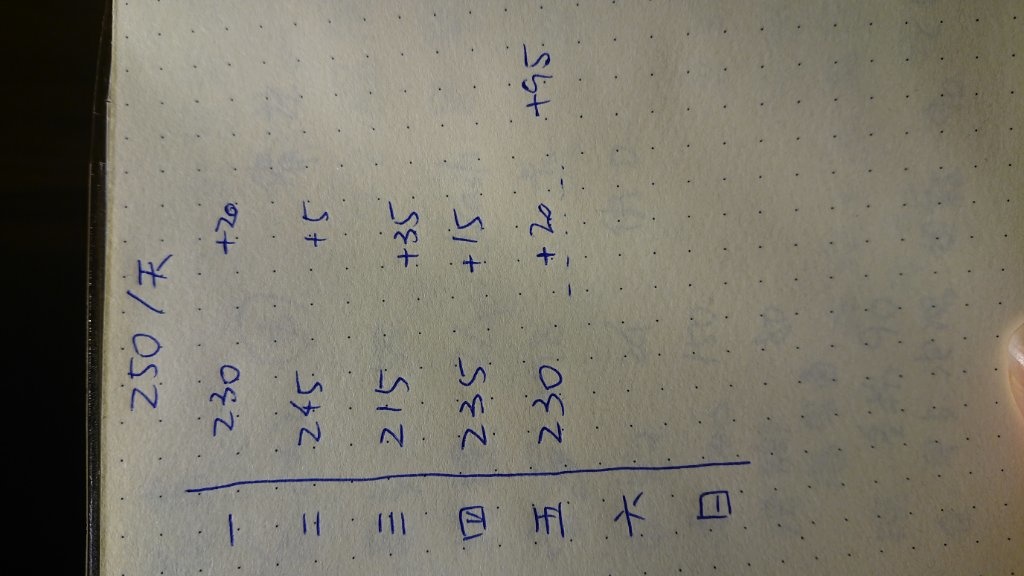 250/天
一 230 +20
二 245 +5
三 215 +35
四 235 +15
五 230 +20 +95
六
日